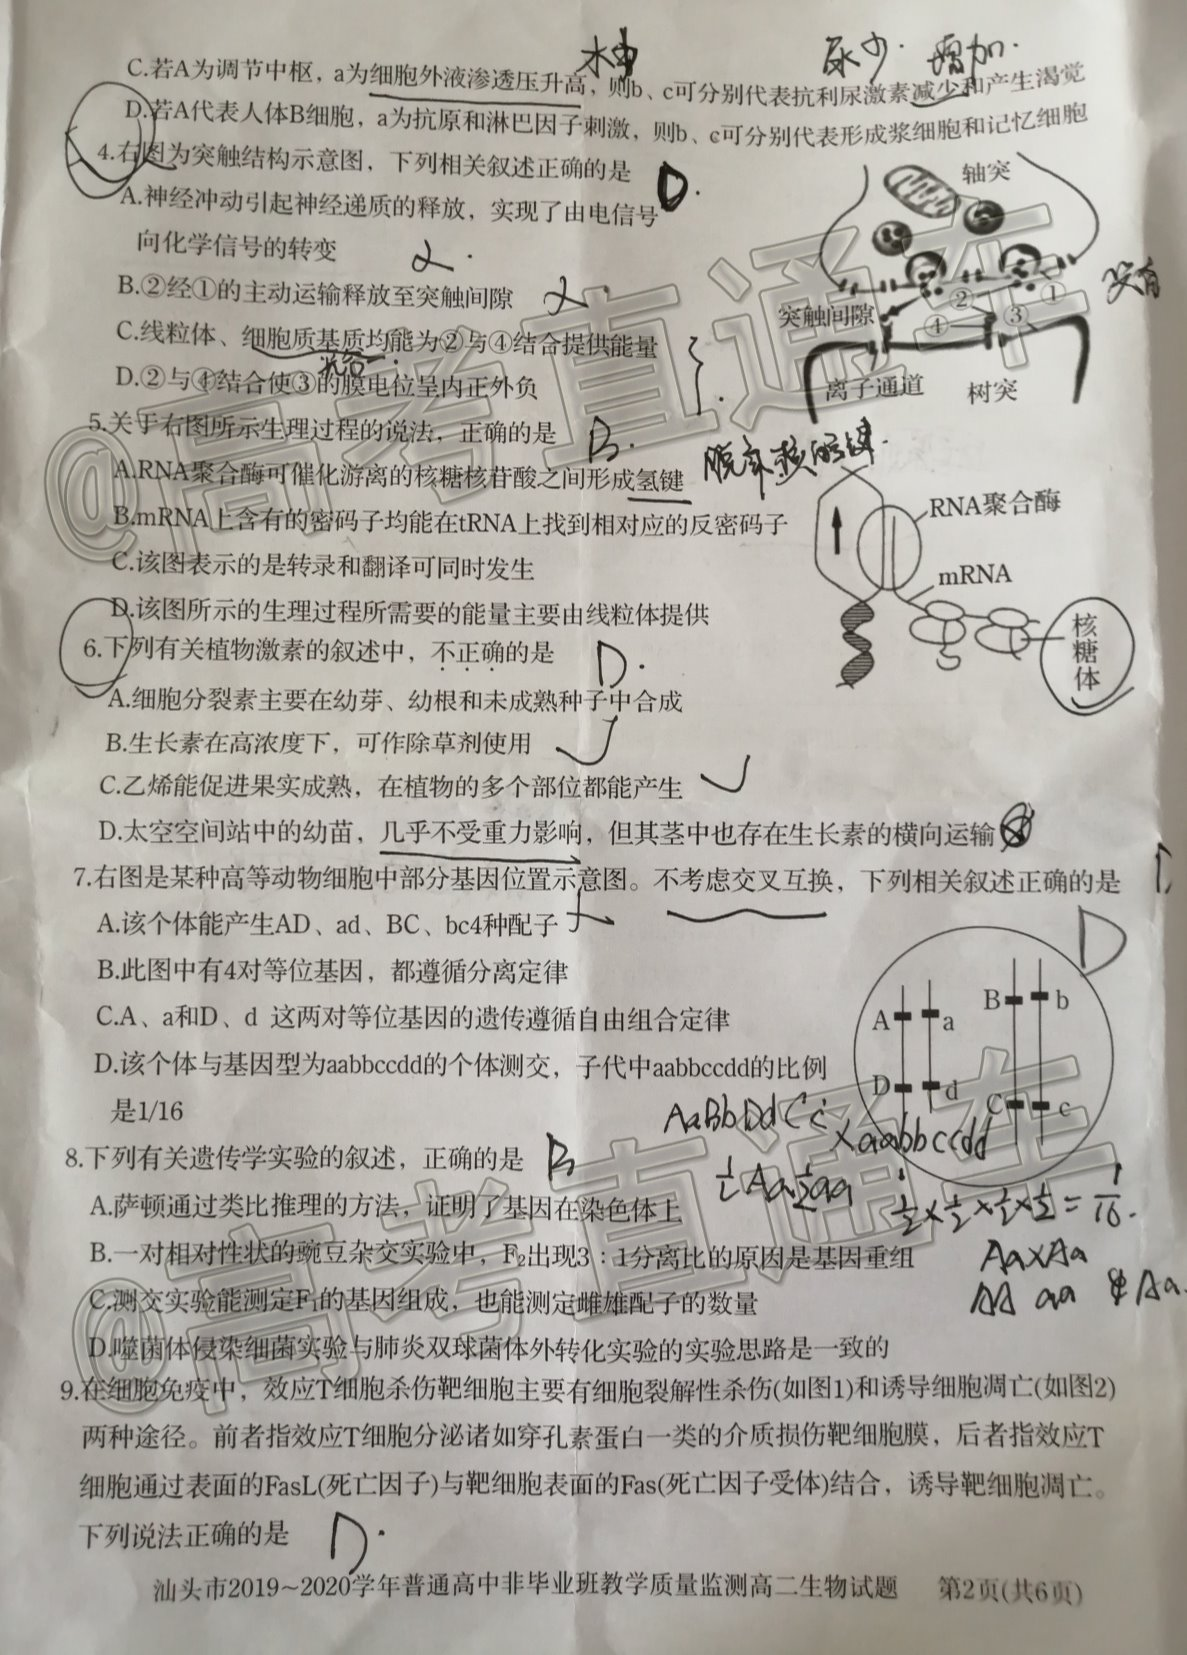 水 尿少. 增加.
C.若A为调节中枢，a为细胞外液渗透压升高，则b、c可分别代表抗利尿激素减少和产生渴觉
D.若A代表人体B细胞，a为抗原和淋巴因子刺激，则b、c可分别代表形成浆细胞和记忆细胞
4.右图为突触结构示意图，下列相关叙述正确的是 D.
A.神经冲动引起神经递质的释放，实现了由电信号
向化学信号的转变
B.②经①的主动运输释放至突触间隙
C.线粒体、细胞质基质均能为②与④结合提供能量
D.②与④结合使③的膜电位呈内正外负
轴突
突触间隙
②
①
④
③
离子通道
树突
5.关于右图所示生理过程的说法，正确的是 B.
A.RNA聚合酶可催化游离的核糖核苷酸之间形成氢键
B.mRNA上含有的密码子均能在tRNA上找到相对应的反密码子
C.该图表示的是转录和翻译可同时发生
D.该图所示的生理过程所需要的能量主要由线粒体提供
RNA聚合酶
mRNA
核糖体
6.下列有关植物激素的叙述中，不正确的是 D.
A.细胞分裂素主要在幼芽、幼根和未成熟种子中合成
B.生长素在高浓度下，可作除草剂使用
C.乙烯能促进果实成熟，在植物的多个部位都能产生
D.太空空间站中的幼苗，几乎不受重力影响，但其茎中也存在生长素的横向运输
7.右图是某种高等动物细胞中部分基因位置示意图。不考虑交叉互换，下列相关叙述正确的是
D
A.该个体能产生AD、ad、BC、bc4种配子
B.此图中有4对等位基因，都遵循分离定律
C.A、a和D、d 这两对等位基因的遗传遵循自由组合定律
D.该个体与基因型为aabbccdd的个体测交，子代中aabbccdd的比例
是1/16
A a B b
D d C c
AaBbDdCc
×aabbccdd
½Aa ½aa
½×½×½×½=1/16.
AaxAa
AA aa Aa.
8.下列有关遗传学实验的叙述，正确的是 B
A.萨顿通过类比推理的方法，证明了基因在染色体上
B.一对相对性状的豌豆杂交实验中，F₂出现3∶1分离比的原因是基因重组
C.测交实验能测定F₁的基因组成，也能测定雌雄配子的数量
D.噬菌体侵染细菌实验与肺炎双球菌体外转化实验的实验思路是一致的
9.在细胞免疫中，效应T细胞杀伤靶细胞主要有细胞裂解性杀伤(如图1)和诱导细胞凋亡(如图2)
两种途径。前者指效应T细胞分泌诸如穿孔素蛋白一类的介质损伤靶细胞膜，后者指效应T
细胞通过表面的FasL(死亡因子)与靶细胞表面的Fas(死亡因子受体)结合，诱导靶细胞凋亡。
下列说法正确的是 D.
汕头市2019~2020学年普通高中非毕业班教学质量监测高二生物试题 第2页(共6页)
@高考直通车
@高考直通车